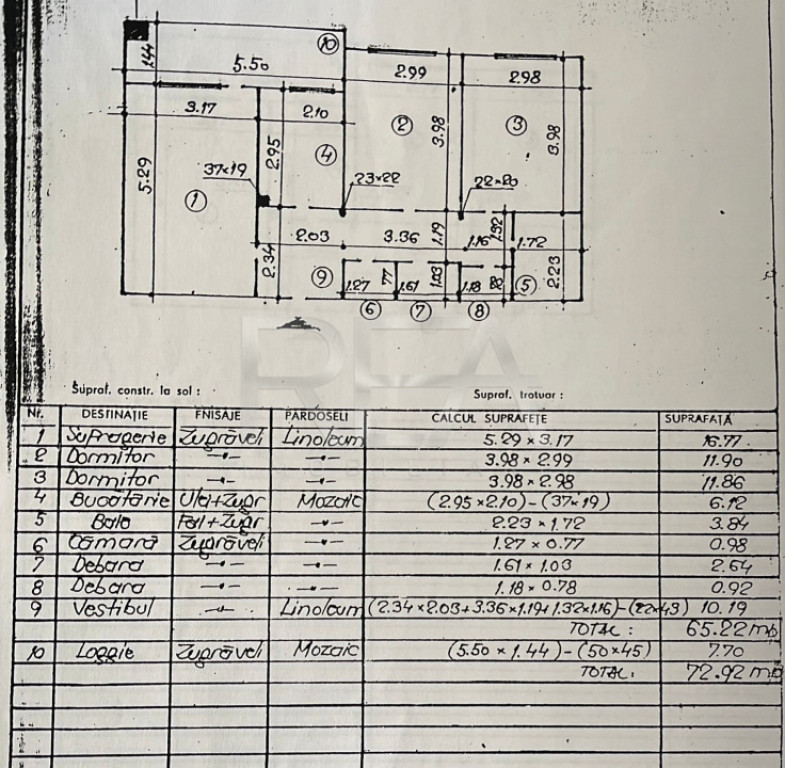 10
1.44
5.50
2.99
2.98
3.17
2.10
2
3
3.98
3.98
2.95
4
37×19
23×22
22×20
5.29
1
2.03
3.36
1.19
1.16
1.32
1.72
2.34
9
1.27
77
1.61
1.03
1.18
5
2.23
6
7
8
REA
Supraf. constr. la sol :
Supraf. trotuar :
Nr. DESTINAȚIE FNISAJE PARDOSELI CALCUL SUPRAFEȚE SUPRAFAȚĂ
1 Sufragerie Zugrăveli Linoleum 5.29 × 3.17 16.77
2 Dormitor —"— —"— 3.98 × 2.99 11.90
3 Dormitor —"— —"— 3.98 × 2.98 11.86
4 Bucătărie Ulei+Zugr Mozaic (2.95 × 2.10) - (37×19) 6.12
5 Baie Fai+Zugr —"— 2.23 × 1.72 3.84
6 Cămară Zugrăveli —"— 1.27 × 0.77 0.98
7 Debara —"— —"— 1.61 × 1.03 2.64
8 Debara —"— —"— 1.18 × 0.78 0.92
9 Vestibul —"— Linoleum (2.34×2.03+3.36×1.19+1.32×1.16)-(22×43) 10.19
TOTAL : 65.22 mp
10 Loggie Zugrăveli Mozaic (5.50 × 1.44) - (50×45) 7.70
TOTAL: 72.92 mp